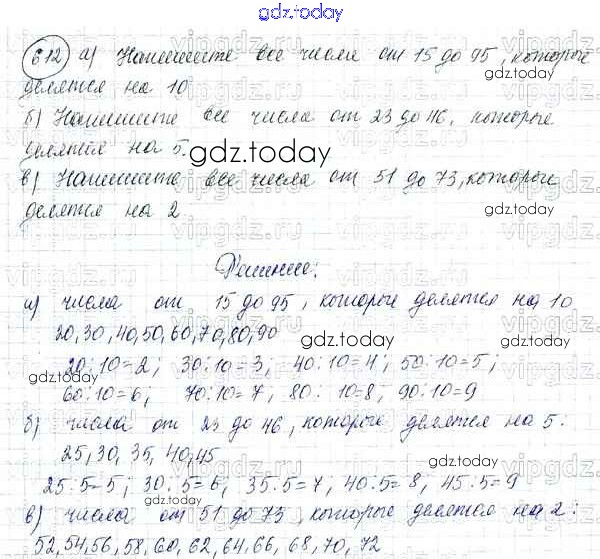 gdz.today
612 а) Напишите все числа от 15 до 95, которые
делятся на 10
б) Напишите все числа от 23 до 46, которые
делятся на 5.
gdz.today
в) Напишите все числа от 51 до 73, которые
делятся на 2
gdz.today
Решение:
а) числа от 15 до 95, которые делятся на 10
20, 30, 40, 50, 60, 70, 80, 90
gdz.today
20:10=2; 30:10=3; 40:10=4; 50:10=5;
gdz.today
60:10=6; 70:10=7, 80:10=8; 90:10=9
gdz.today
б) числа от 23 до 46, которые делятся на 5:
25, 30, 35, 40, 45
25:5=5; 30:5=6; 35:5=7; 40:5=8, 45:5=9
в) числа от 51 до 73, которые делятся на 2:
gdz.today
52, 54, 56, 58, 60, 62, 64, 66, 68, 70, 72